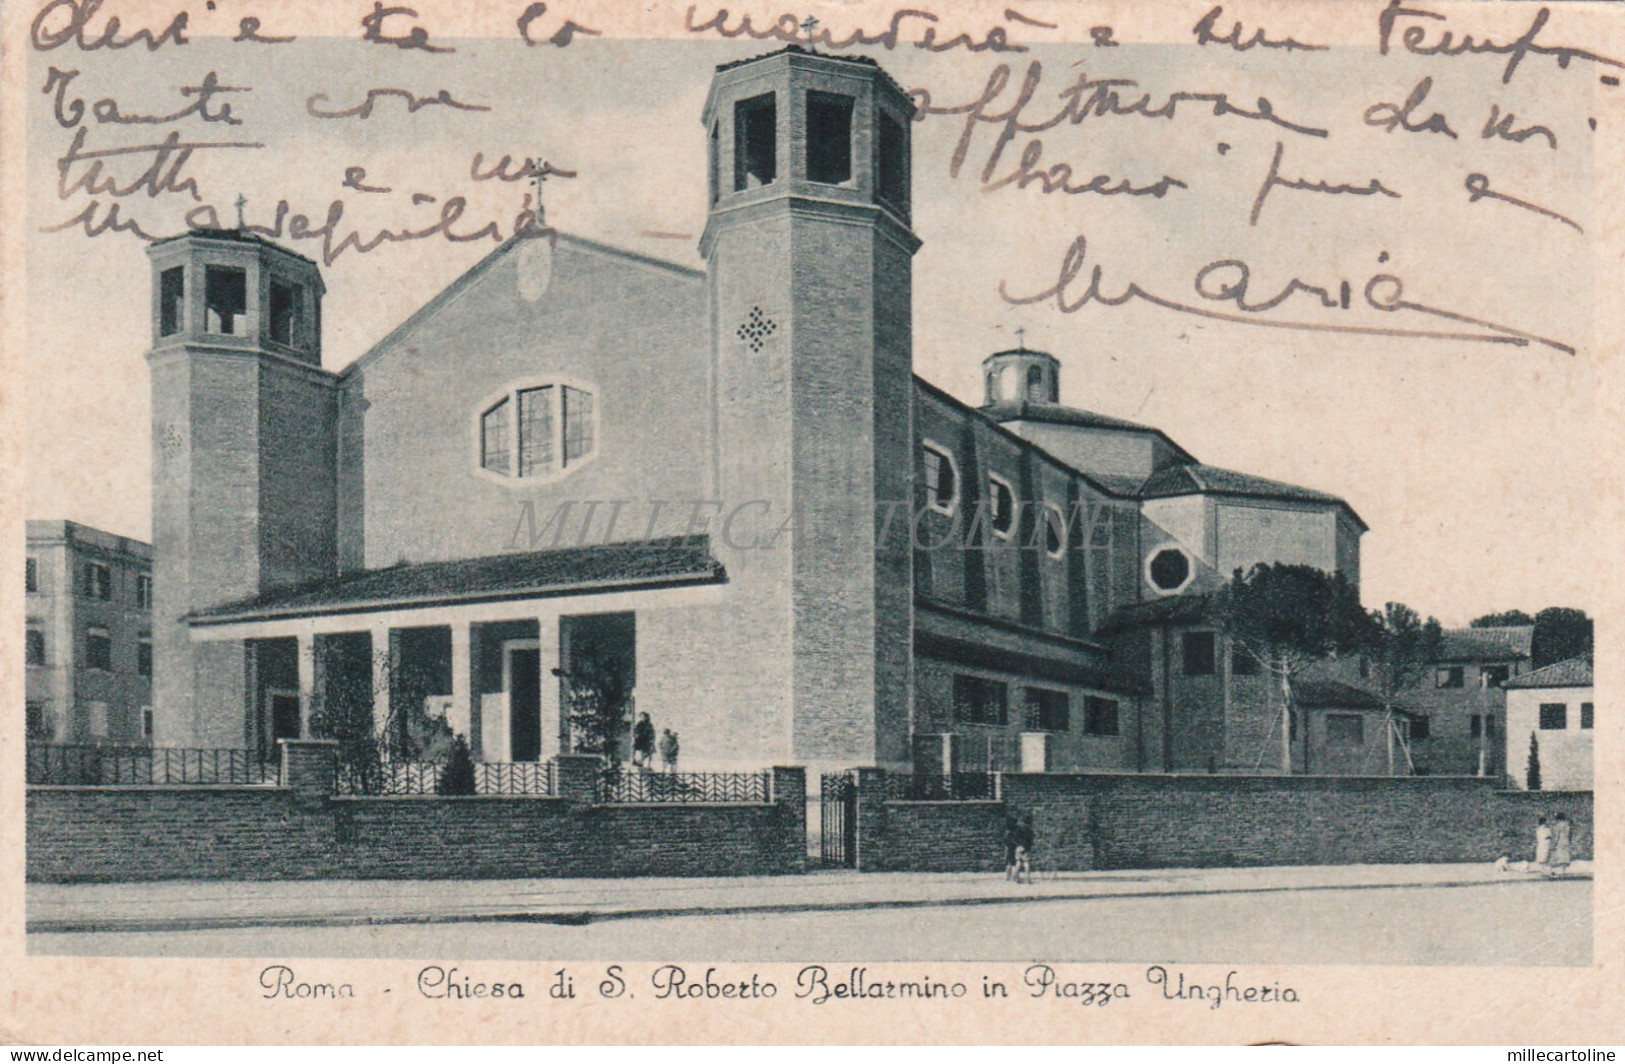 desi e te lo manderà e un tempo
Tante cose affettuose da noi
tutti e un bacio pure e
Maria
MILLECARTOLINE
Roma - Chiesa di S. Roberto Bellarmino in Piazza Ungheria
https://www.delcampe.net
millecartoline